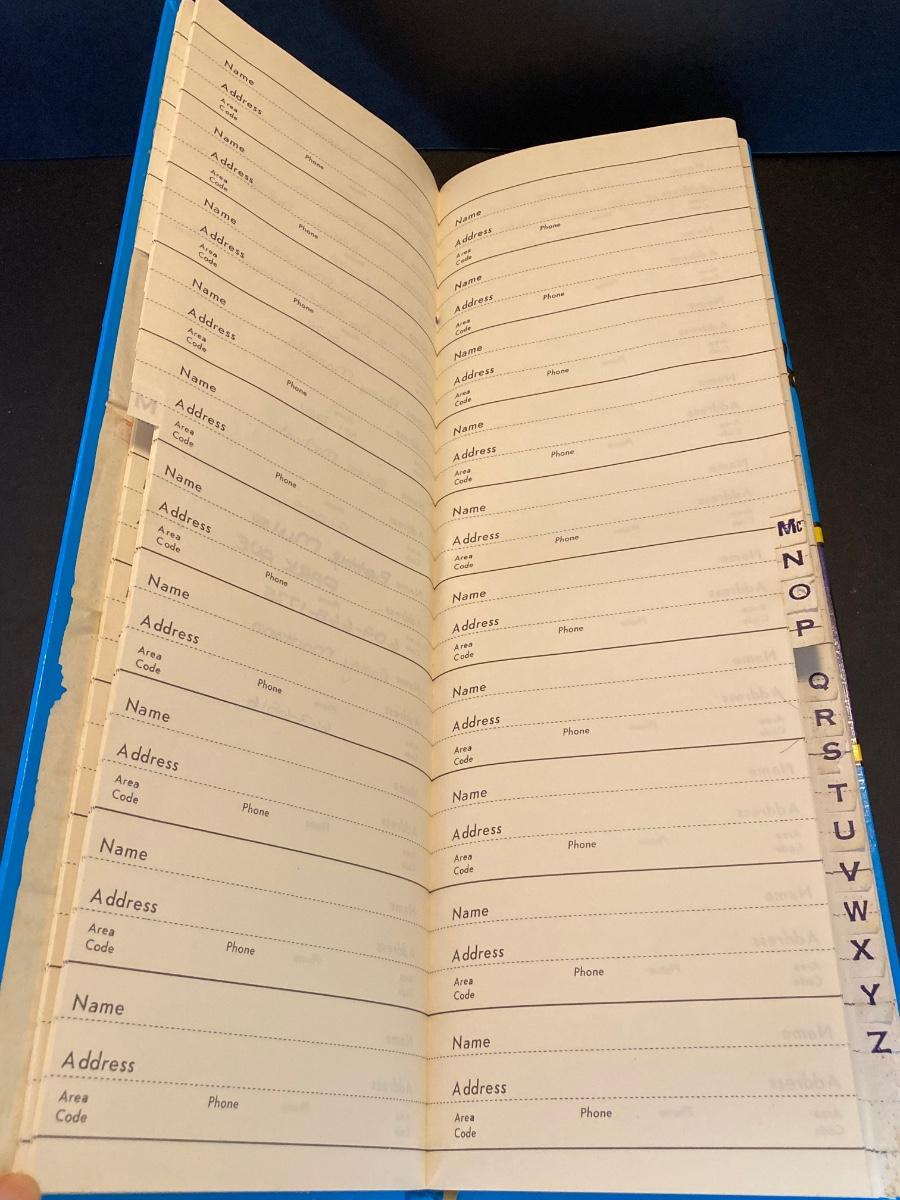 Name
Address
Area
Code Phone
Name
Address
Area
Code Phone
Name
Address
Area
Code Phone
Name
Address
Area
Code Phone
Name
Address
Area
Code Phone
Name
Address
Area
Code Phone
Name
Address
Area
Code Phone
Name
Address
Area
Code Phone
Name
Address
Area
Code Phone
Name
Address
Area
Code Phone
M
Name
Address Phone
Area
Code
Name
Address Phone
Area
Code
Name
Address Phone
Area
Code
Name
Address Phone
Area
Code
Name
Address Phone
Area
Code
Name
Address Phone
Area
Code
Name
Address Phone
Area
Code
Name
Address Phone
Area
Code
Name
Address Phone
Area
Code
Name
Address Phone
Area
Code
Mc
N
O
P
Q
R
S
T
U
V
W
X
Y
Z